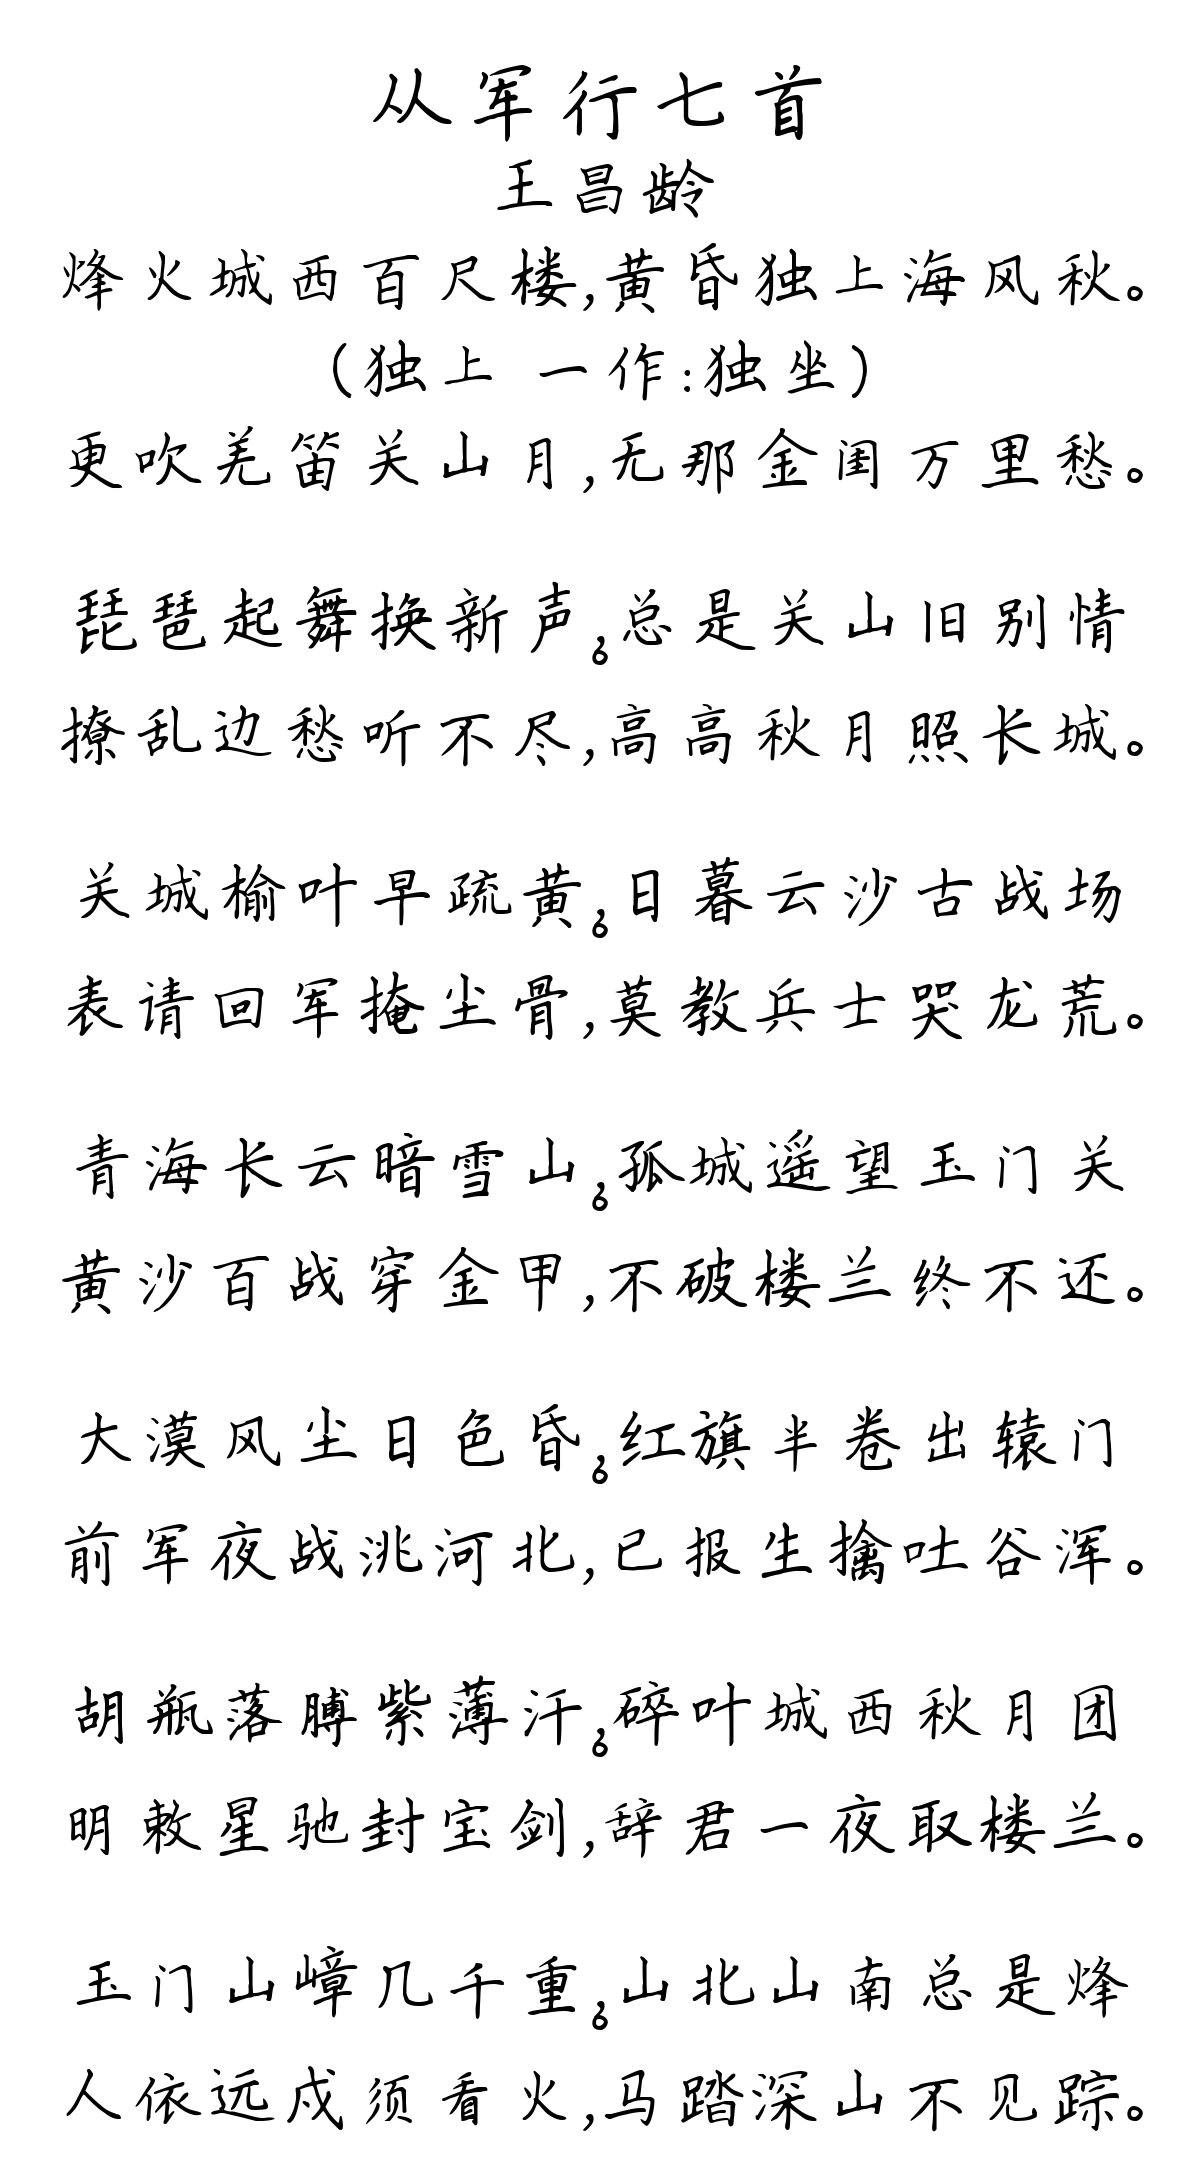 从军行七首
王昌龄
烽火城西百尺楼,黄昏独上海风秋。
(独上 一作:独坐)
更吹羌笛关山月,无那金闺万里愁。
琵琶起舞换新声,总是关山旧别情。
撩乱边愁听不尽,高高秋月照长城。
关城榆叶早疏黄,日暮云沙古战场。
表请回军掩尘骨,莫教兵士哭龙荒。
青海长云暗雪山,孤城遥望玉门关。
黄沙百战穿金甲,不破楼兰终不还。
大漠风尘日色昏,红旗半卷出辕门。
前军夜战洮河北,已报生擒吐谷浑。
胡瓶落膊紫薄汗,碎叶城西秋月团。
明敕星驰封宝剑,辞君一夜取楼兰。
玉门山嶂几千重,山北山南总是烽。
人依远戍须看火,马踏深山不见踪。